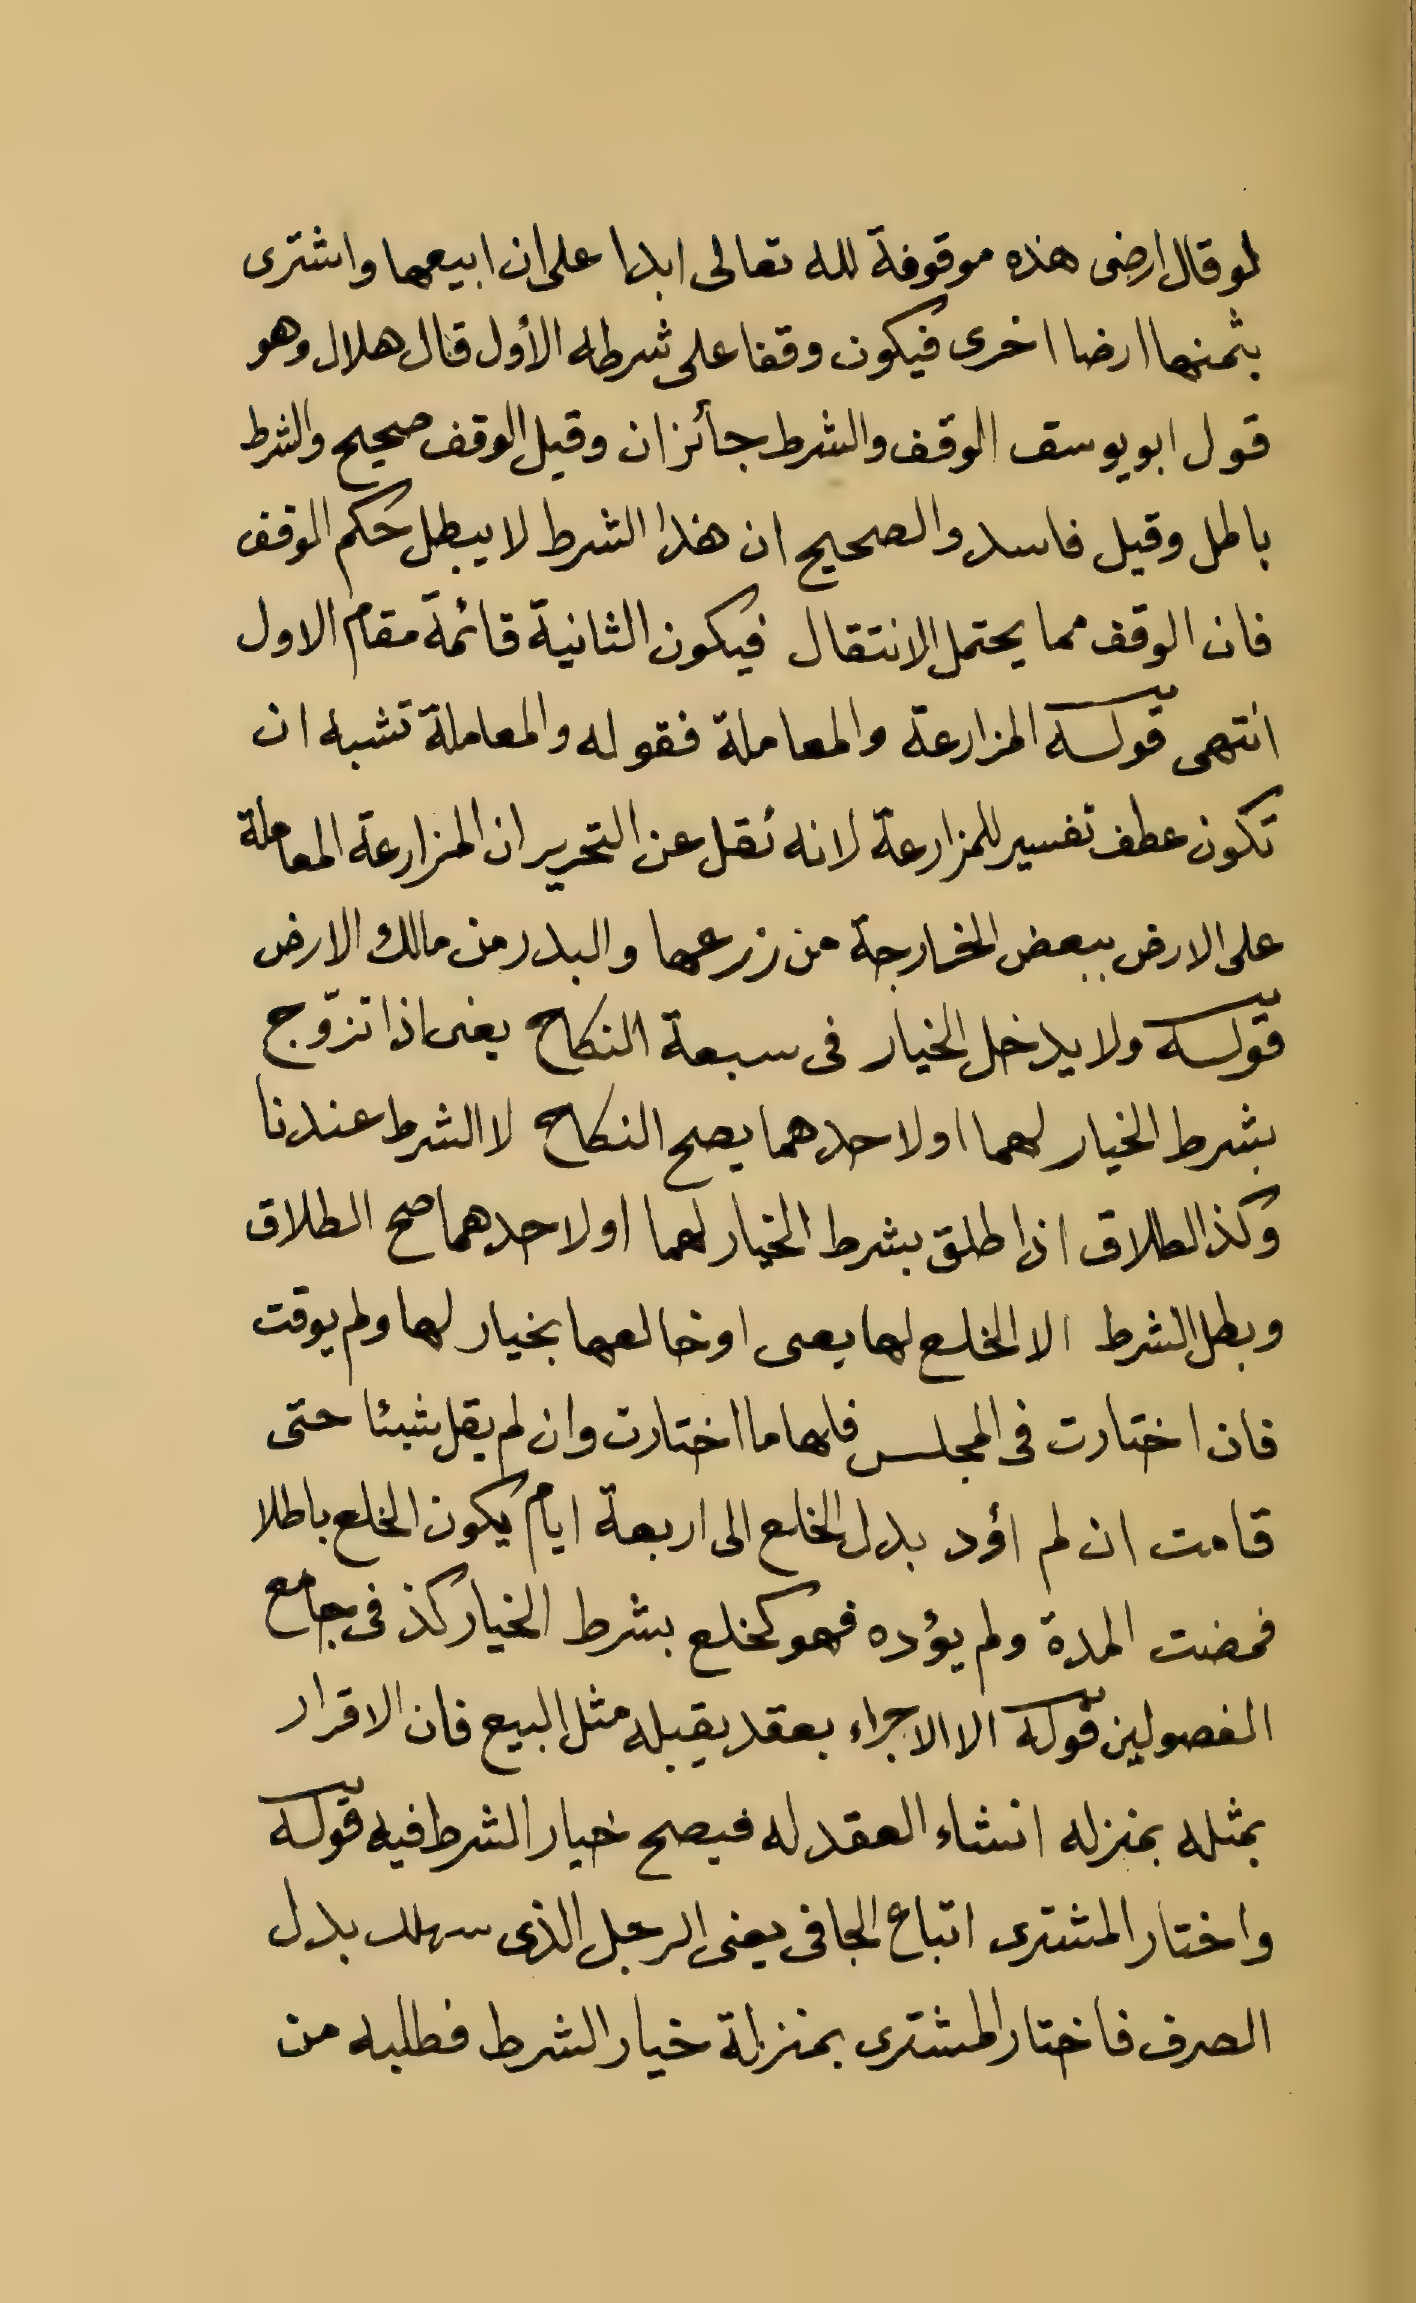 لو قال ارضى هذه موقوفة لله تعالى ابدا على ان ابيعها واشترى
بثمنها ارضا اخرى فيكون وقفا على شرطه الأول قال هلال وهو
قول ابو يوسف الوقف والشرط جائزان وقيل الوقف صحيح والشرط
باطل وقيل فاسد والصحيح ان هذا الشرط لا يبطل حكم الوقف
فان الوقف مما يحتمل الانتقال فيكون الثانية قائمة مقام الاول
انتهى قوله المزارعة والمعاملة فقوله والمعاملة تشبه ان
تكون عطف تفسير للمزارعة لانه نقل عن التحرير ان المزارعة المعاملة
على الارض ببعض الخارجة من زرعها والبدر من مالك الارض
قوله ولا يدخل الخيار فى سبعة النكاح يعنى اذا تزوّج
بشرط الخيار لهما او لاحدهما يصح النكاح لا الشرط عندنا
وكذ الطلاق اذا طلق بشرط الخيار لهما او لاحدهما صح الطلاق
وبطل الشرط الا الخلع لها يعى او خالعها بخيار لها ولم يوقت
فان اختارت فى المجلس فلها ما اختارت وان لم يقل شيئا حتى
قامت ان لم اؤد بدل الخلع الى اربعة ايام يكون الخلع باطلا
فمضت المدة ولم يؤده فهو كخلع بشرط الخيار كذ فى جامع
الفصولين قوله الا الاجراء بعقد يقبله مثل البيع فان الاقرار
بمثله بمنزله انشاء العقد له فيصح خيار الشرط فيه قوله
واختار المشترى اتباع الجافى يعنى الرجل الذى بدل
الصرف فاختار المشترى بمنزلة خيار الشرط فطلبه من